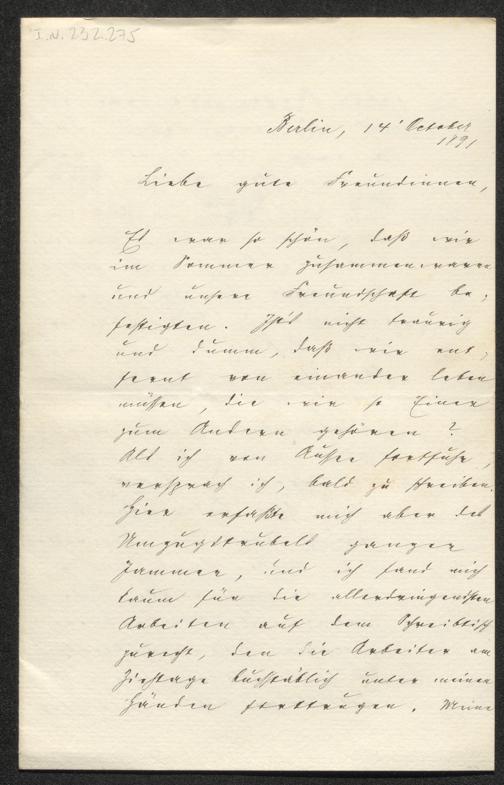 I.N. 232.275
Berlin, 14' October
1891
Liebe gute Freundinnen,
Es war so schön, daß wir
im Sommer zusammen waren
und unsere Freundschaft be-
festigten. Ist's nicht traurig
und dumm, daß wir ent-
fernt von einander leben
müssen, die wir so Einer
zum Andern gehören?
Als ich von Aussee fortfuhr,
versprach ich, bald zu schreiben.
Hier erfaßte mich aber des
Umzugstrubels ganzer
Jammer, und ich fand mich
kaum für die allerdringendsten
Arbeiten auf dem Schreibtisch
zurecht, den die Arbeiter am
Ziehtage buchstäblich unter meinen
Händen forttrugen. Meine